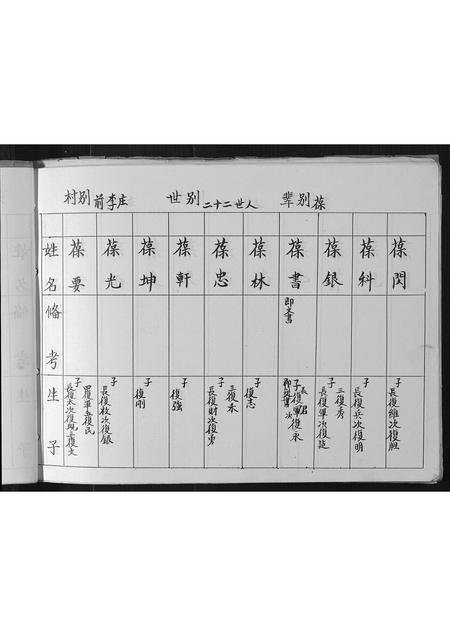 村别 前李庄 世别 二十二世人 辈别 葆
姓名 葆要 葆光 葆坤 葆軒 葆忠 葆林 葆書 葆銀 葆科 葆閃
偹考 即文書
生子
子 長復太次復現三復文
四復軍五復民
子 長復枚次復銀
子 復剛
子 復強
子 長復財次復勇
三復禾
子 復志
子
子 長復軍次復
三復秀
子 長復兵次復明
子 長復維次復胆